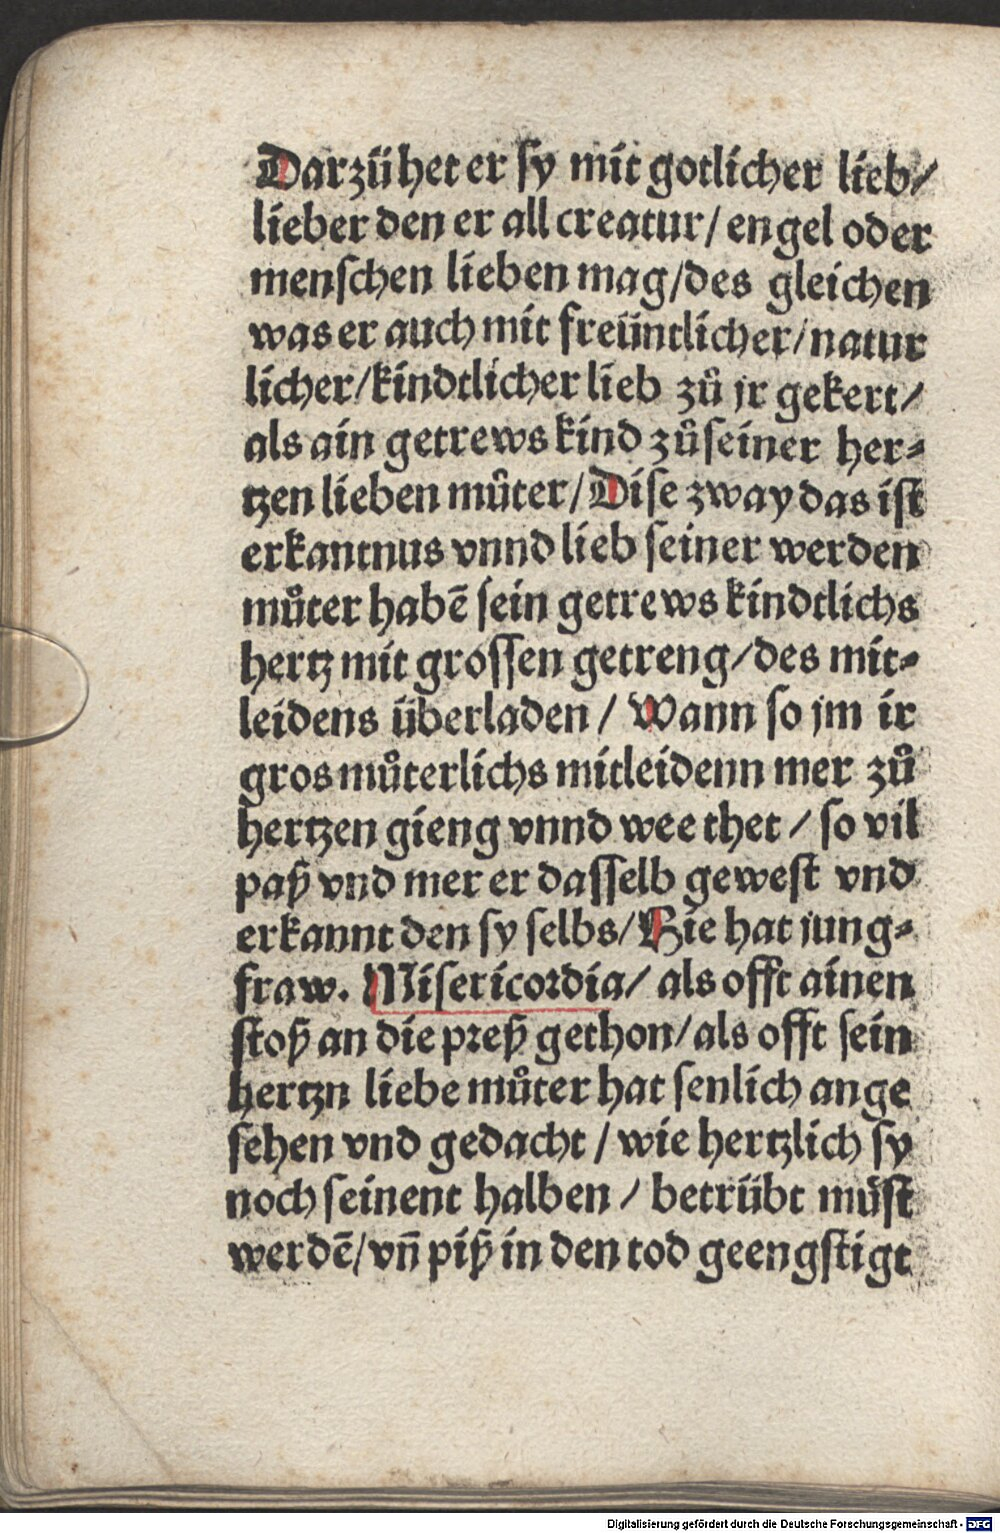 Darzü het er sy mit gotlicher lieb/
lieber den er all creatur/ engel oder
menschen lieben mag/des gleichen
was er auch mit freüntlicher/natur
licher/kindtlicher lieb zů jr gekert/
als ain getrews kind zů seiner her⸗
tzen lieben můter/Dise zway das ist
erkantnus vnnd lieb seiner werden
můter habē sein getrews kindtlichs
hertz mit grossen getreng/des mit⸗
leidens überladen / Wann so jm ir
gros můterlichs mitleidenn mer zů
hertzen gieng vnnd wee thet / so vil
paß vnd mer er dasselb gewest vnd
erkannt den sy selbs/Hie hat jung⸗
fraw. Misericordia/ als offt ainen
stoß an die preß gethon/als offt sein
hertzn liebe můter hat senlich ange
sehen vnd gedacht / wie hertzlich sy
noch seinent halben / betrübt müst
werdē/vn̄ piß in den tod geengstigt
Digitalisierung gefördert durch die Deutsche Forschungsgemeinschaft - DFG